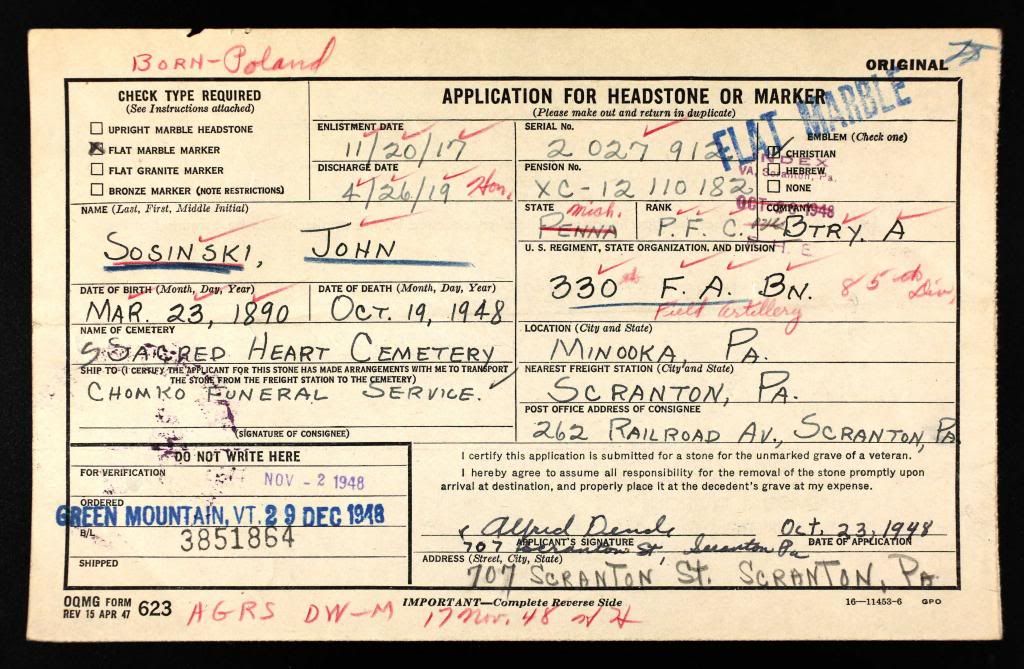 BORN-Poland
ORIGINAL
CHECK TYPE REQUIRED
(See Instructions attached)
UPRIGHT MARBLE HEADSTONE
FLAT MARBLE MARKER
FLAT GRANITE MARKER
BRONZE MARKER (NOTE RESTRICTIONS)
APPLICATION FOR HEADSTONE OR MARKER
(Please make out and return in duplicate)
FLAT MARBLE
ENLISTMENT DATE
11/20/17
DISCHARGE DATE
4/26/19 Hon.
SERIAL No.
2 027 912
PENSION No.
XC-12 110 182
EMBLEM (Check one)
CHRISTIAN
HEBREW
NONE
INDEX
VA, Scranton, Pa.
OCT 1948
NAME (Last, First, Middle Initial)
SOSINSKI, JOHN
STATE
PENNA Mich.
RANK
P. F. C.
COMPANY
BTRY. A
U. S. REGIMENT, STATE ORGANIZATION, AND DIVISION
330 st F. A. BN. 85th Div,
Field Artillery
DATE OF BIRTH (Month, Day, Year)
MAR. 23, 1890
DATE OF DEATH (Month, Day, Year)
OCT. 19, 1948
NAME OF CEMETERY
SACRED HEART CEMETERY
LOCATION (City and State)
MINOOKA, PA.
SHIP TO (I CERTIFY THE APPLICANT FOR THIS STONE HAS MADE ARRANGEMENTS WITH ME TO TRANSPORT
THE STONE FROM THE FREIGHT STATION TO THE CEMETERY)
CHOMKO FUNERAL SERVICE.
(SIGNATURE OF CONSIGNEE)
NEAREST FREIGHT STATION (City and State)
SCRANTON, PA.
POST OFFICE ADDRESS OF CONSIGNEE
262 RAILROAD AV., SCRANTON, PA
DO NOT WRITE HERE
FOR VERIFICATION
NOV - 2 1948
ORDERED
GREEN MOUNTAIN, VT. 29 DEC 1948
B/L
3851864
SHIPPED
I certify this application is submitted for a stone for the unmarked grave of a veteran.
I hereby agree to assume all responsibility for the removal of the stone promptly upon
arrival at destination, and properly place it at the decedent's grave at my expense.
Alfred Dende Oct. 23, 1948
APPLICANT'S SIGNATURE DATE OF APPLICATION
707 Scranton St, Scranton Pa
ADDRESS (Street, City, State)
707 SCRANTON ST. SCRANTON, PA
OQMG FORM
REV 15 APR 47 623
AGRS DW-M 17 Nov. 48
IMPORTANT—Complete Reverse Side
16—11453-6 GPO